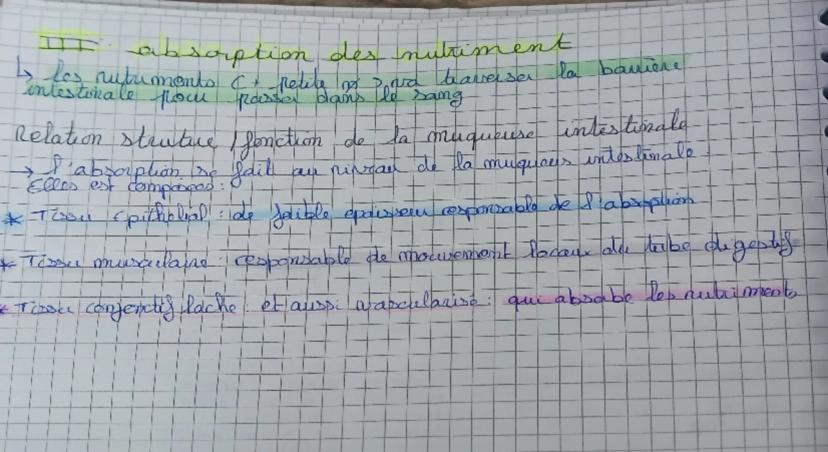 III absorption des nutriment
↳ les nutuments (+ petits) va traverser la barrière
intestinale pour passer dans le sang
Relation struture / fonction de la muqueuse intestinale
→ l'absorption se fait au niveau de la muqueuse intestinale
Elles est composées :
* Tissu épithélial : de faible epaisseur responsable de l'absorption
* Tissu musculaire : responsable de mouvement locaux du tube digestif
* Tissu conjenctif lache et aussi vascularisé : qui absorbe les nutriments